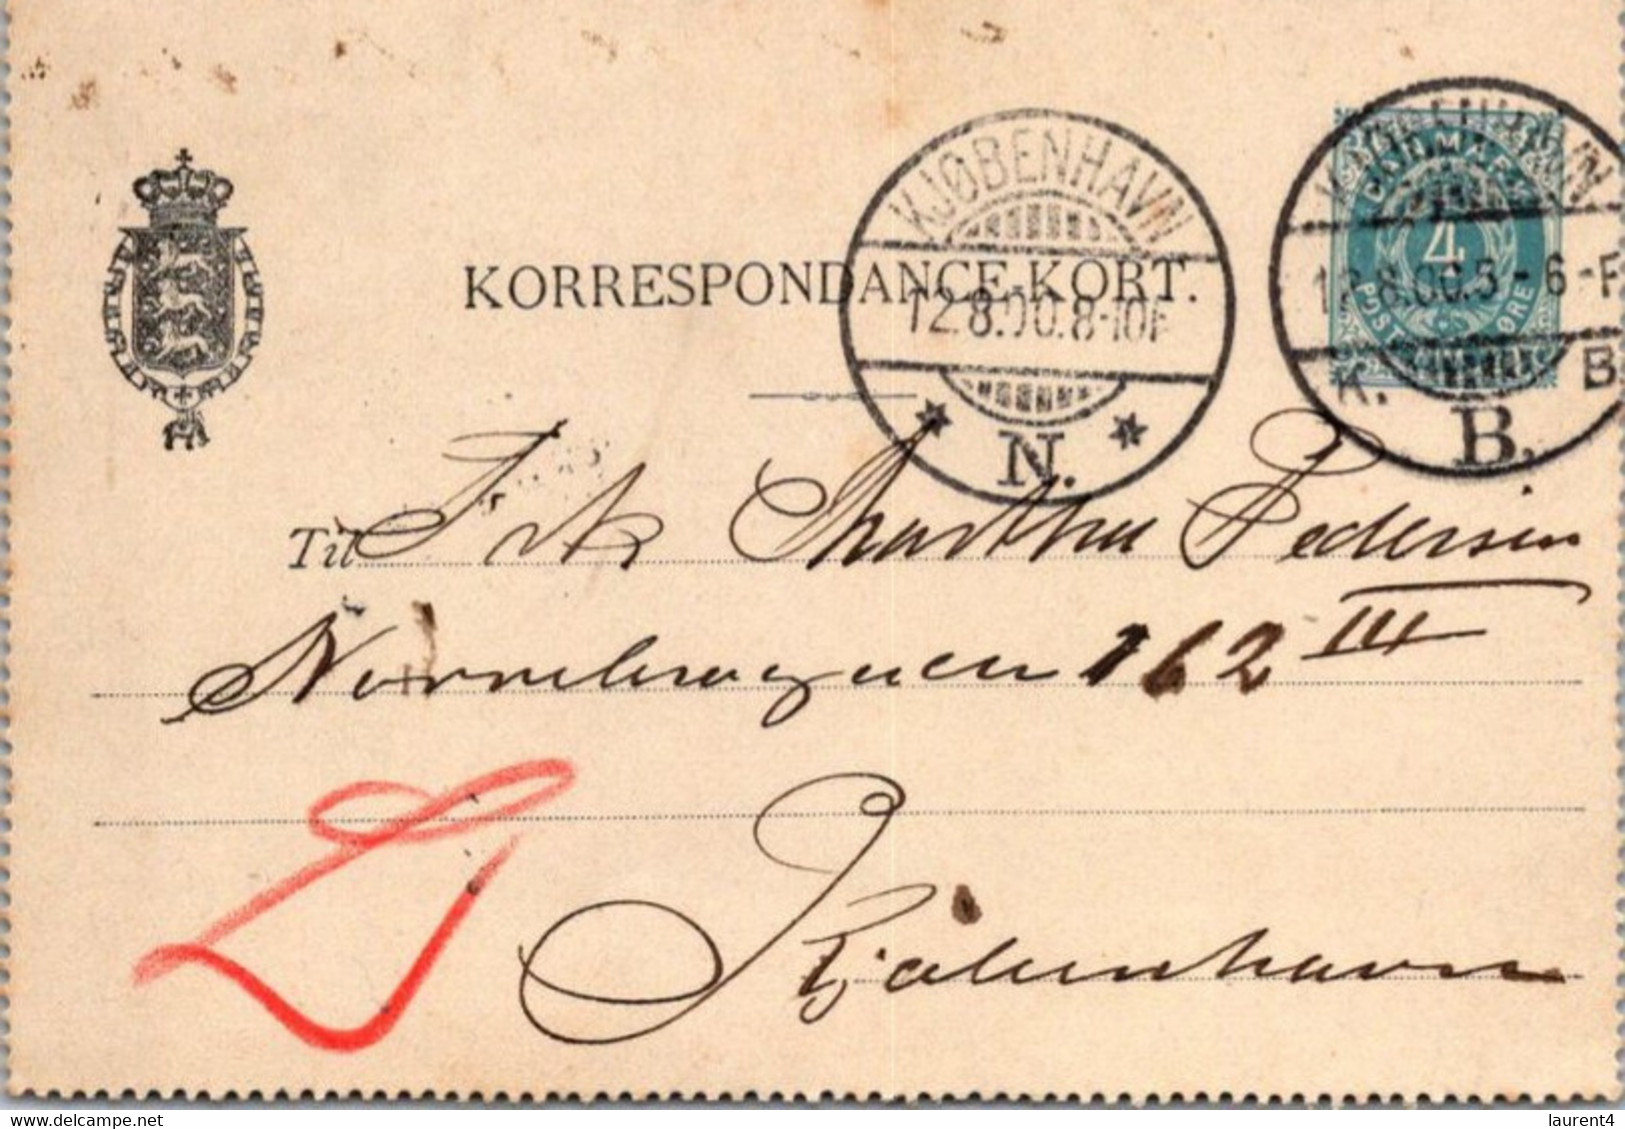 KJØBENHAVN
12.8.00.8-10F
N.
DANMARK
4
POSTFRIM ØRE
12.8.00.5-6-F
K. B
B.
KORRESPONDANCE-KORT.
Til Frk Martha Pedersen
Nørrebrogade 162 III
Kjøbenhavn
delcampe.net
laurent4